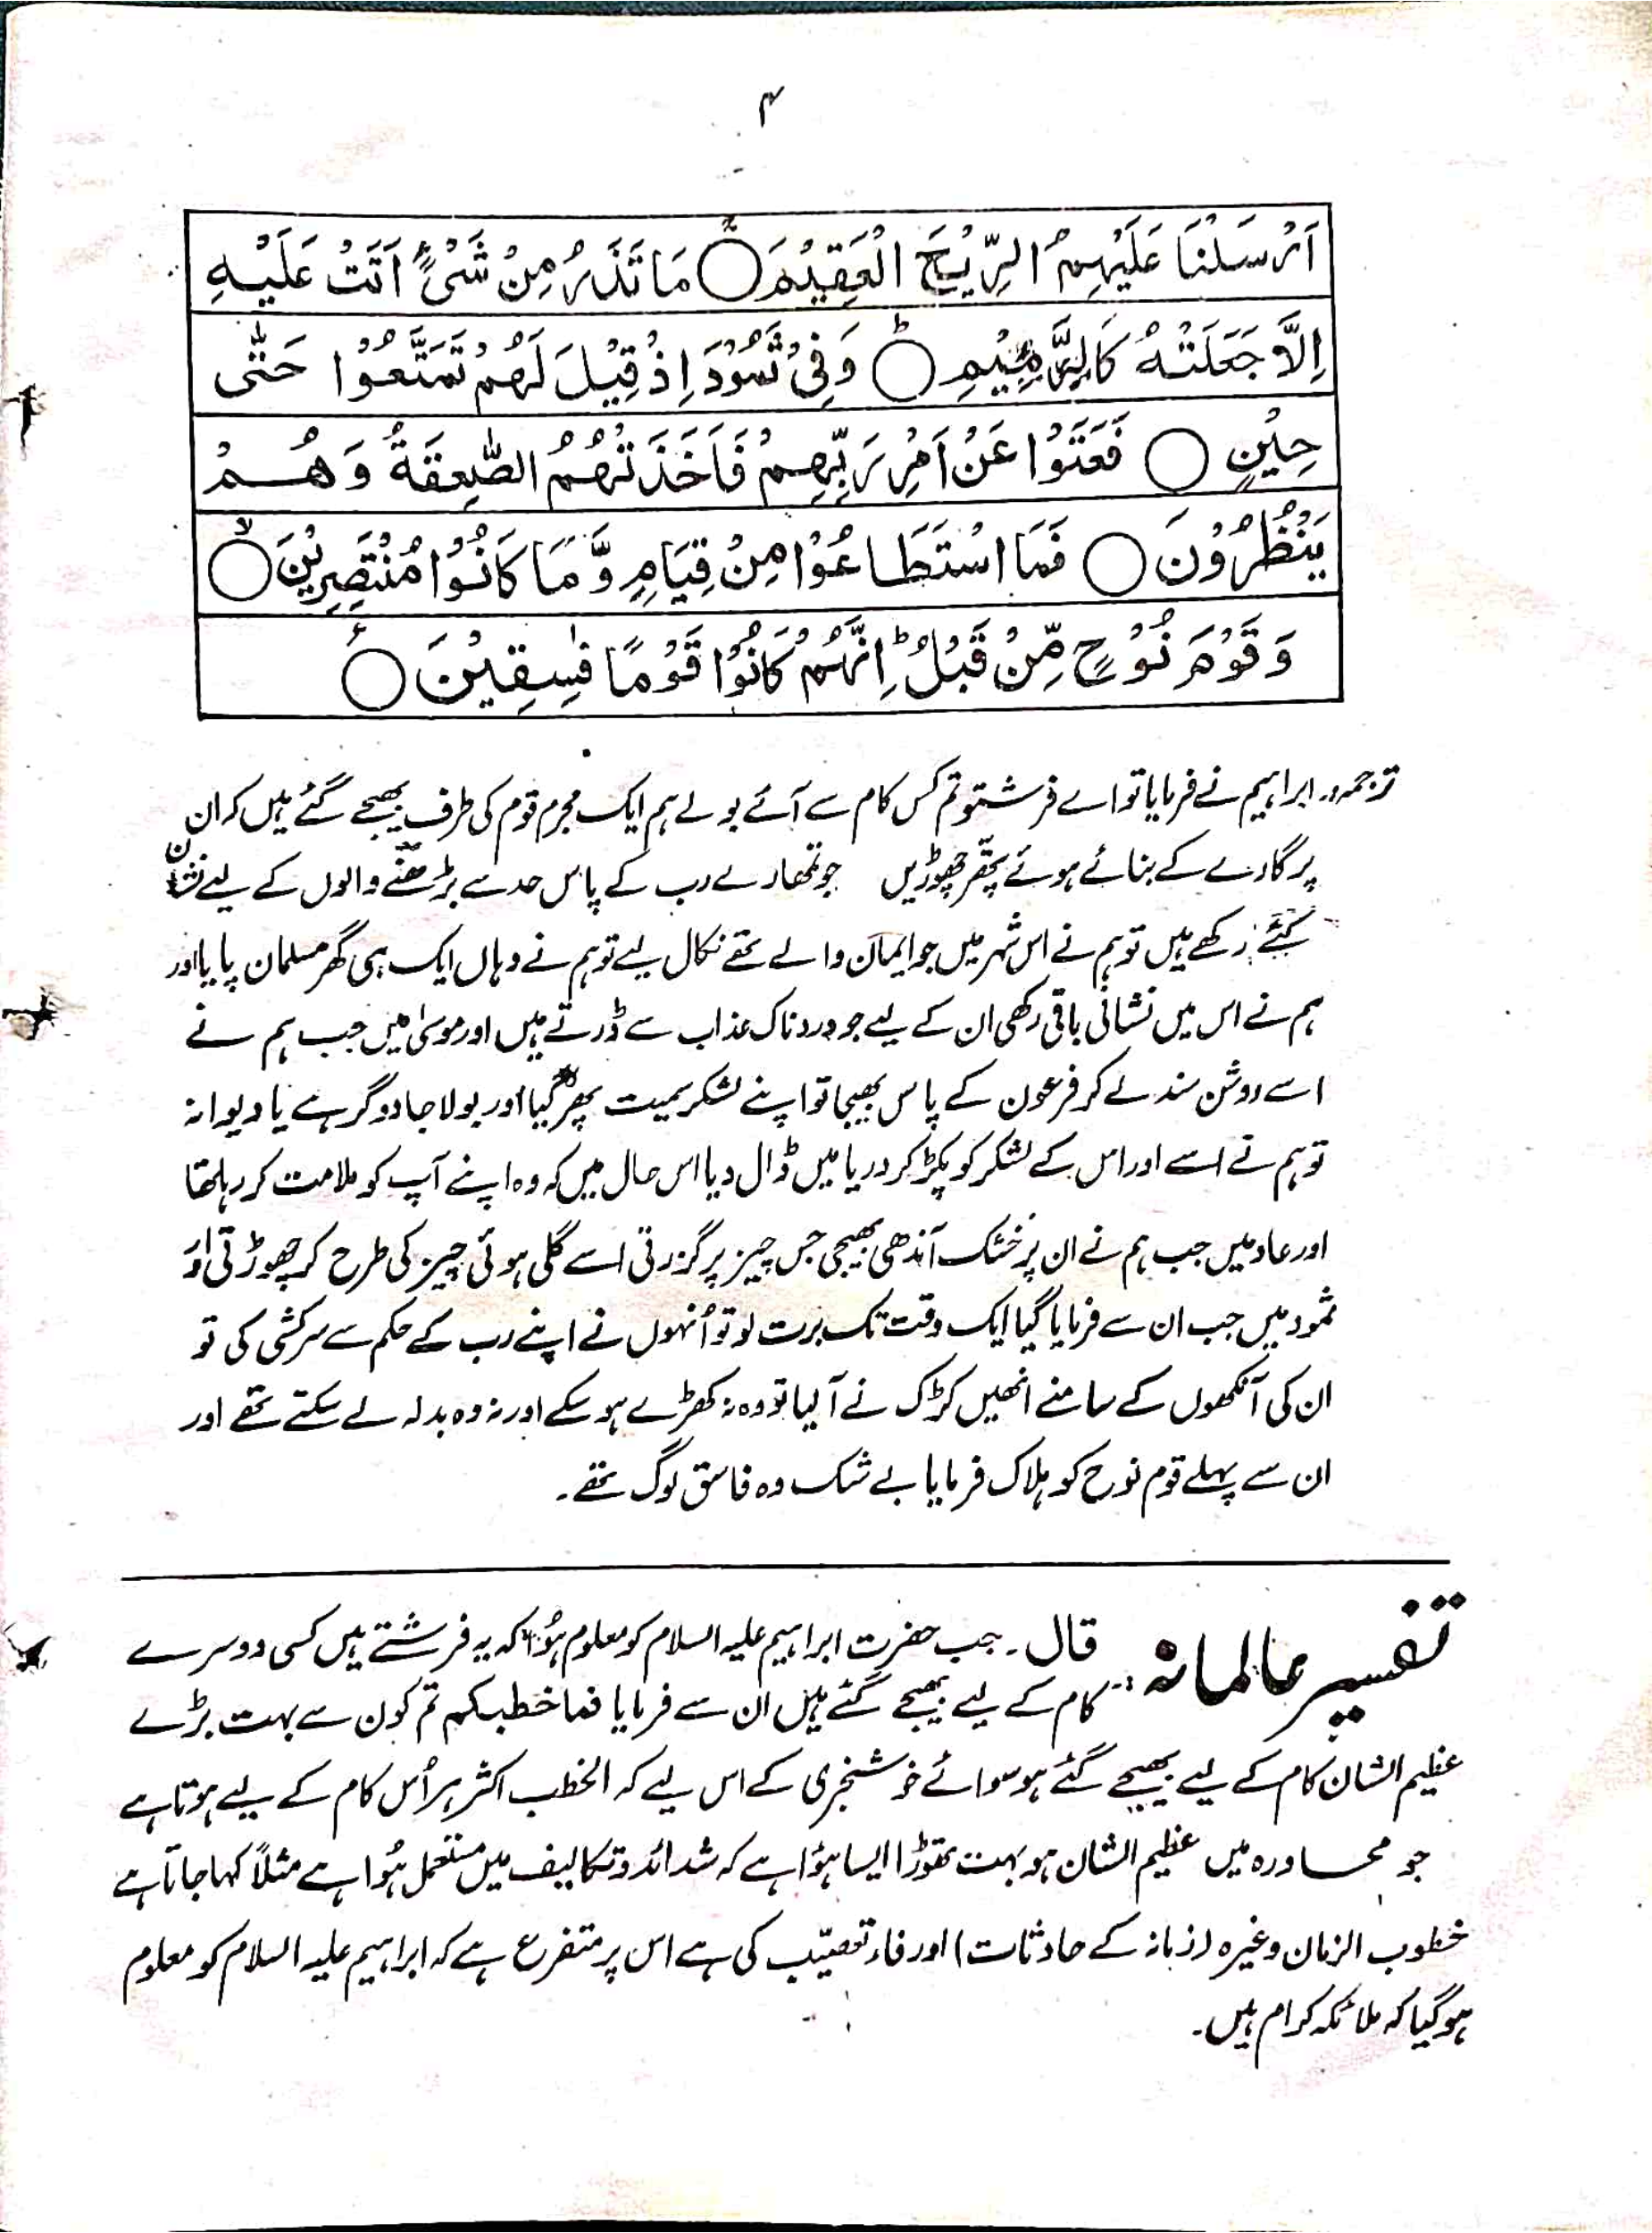 ۴
اَرْسَلْنَا عَلَيْهِمُ الرِّيْحَ الْعَقِيْمَ ○ مَا تَذَرُ مِنْ شَيْءٍ اَتَتْ عَلَيْهِ
اِلَّا جَعَلَتْهُ كَالرَّمِيْمِ ○ؕ وَفِيْ ثَمُوْدَ اِذْ قِيْلَ لَهُمْ تَمَتَّعُوْا حَتّٰى
حِيْنٍ ○ فَعَتَوْا عَنْ اَمْرِ رَبِّهِمْ فَاَخَذَتْهُمُ الصّٰعِقَةُ وَهُمْ
يَنْظُرُوْنَ ○ فَمَا اسْتَطَاعُوْا مِنْ قِيَامٍ وَّمَا كَانُوْا مُنْتَصِرِيْنَ ○ۙ
وَقَوْمَ نُوْحٍ مِّنْ قَبْلُ ؕ اِنَّهُمْ كَانُوْا قَوْمًا فٰسِقِيْنَ ○
ترجمہ:۔ ابراہیم نے فرمایا تو اے فرشتو تم کس کام سے آئے بولے ہم ایک مجرم قوم کی طرف بھیجے گئے ہیں کہ ان
پر گارے کے بنائے ہوئے پتھر چھوڑیں جو تمھارے رب کے پاس حد سے بڑھنے والوں کے لیے نشان
کئے رکھے ہیں تو ہم نے اس شہر میں جو ایمان والے تھے نکال لیے تو ہم نے وہاں ایک ہی گھر مسلمان پایا اور
ہم نے اس میں نشانی باقی رکھی ان کے لیے جو دردناک عذاب سے ڈرتے ہیں اور موسیٰ میں جب ہم نے
اسے روشن سند لے کر فرعون کے پاس بھیجا تو اپنے لشکر سمیت پھر گیا اور بولا جادوگر ہے یا دیوانہ
تو ہم نے اسے اور اس کے لشکر کو پکڑ کر دریا میں ڈال دیا اس حال میں کہ وہ اپنے آپ کو ملامت کر رہا تھا
اور عاد میں جب ہم نے ان پر خشک آندھی بھیجی جس چیز پر گزرتی اسے گلی ہوئی چیز کی طرح کر چھوڑتی اور
ثمود میں جب ان سے فرمایا گیا ایک وقت تک برت لو تو اُنہوں نے اپنے رب کے حکم سے سرکشی کی تو
ان کی آنکھوں کے سامنے انھیں کڑک نے آلیا تو وہ نہ کھڑے ہو سکے اور نہ وہ بدلہ لے سکتے تھے اور
ان سے پہلے قوم نوح کو ہلاک فرمایا بے شک وہ فاسق لوگ تھے۔
تفسیر عالمانہ:۔ قال۔ جب حضرت ابراہیم علیہ السلام کو معلوم ہُوا کہ یہ فرشتے ہیں کسی دوسرے
کام کے لیے بھیجے گئے ہیں ان سے فرمایا فما خطبکم تم کون سے بہت بڑے
عظیم الشان کام کے لیے بھیجے گئے ہو سوائے خوشخبری کے اس لیے کہ الخطب اکثر ہر اُس کام کے لیے ہوتا ہے
جو محاورہ میں عظیم الشان ہو بہت تھوڑا ایسا ہوا ہے کہ شدائد و تکالیف میں مستعمل ہُوا ہے مثلاً کہا جاتا ہے
خطوب الزمان وغیرہ (زمانہ کے حادثات) اور فاء تعصیّب کی ہے اس پر متفرع ہے کہ ابراہیم علیہ السلام کو معلوم
ہو گیا کہ ملائکہ کرام ہیں۔